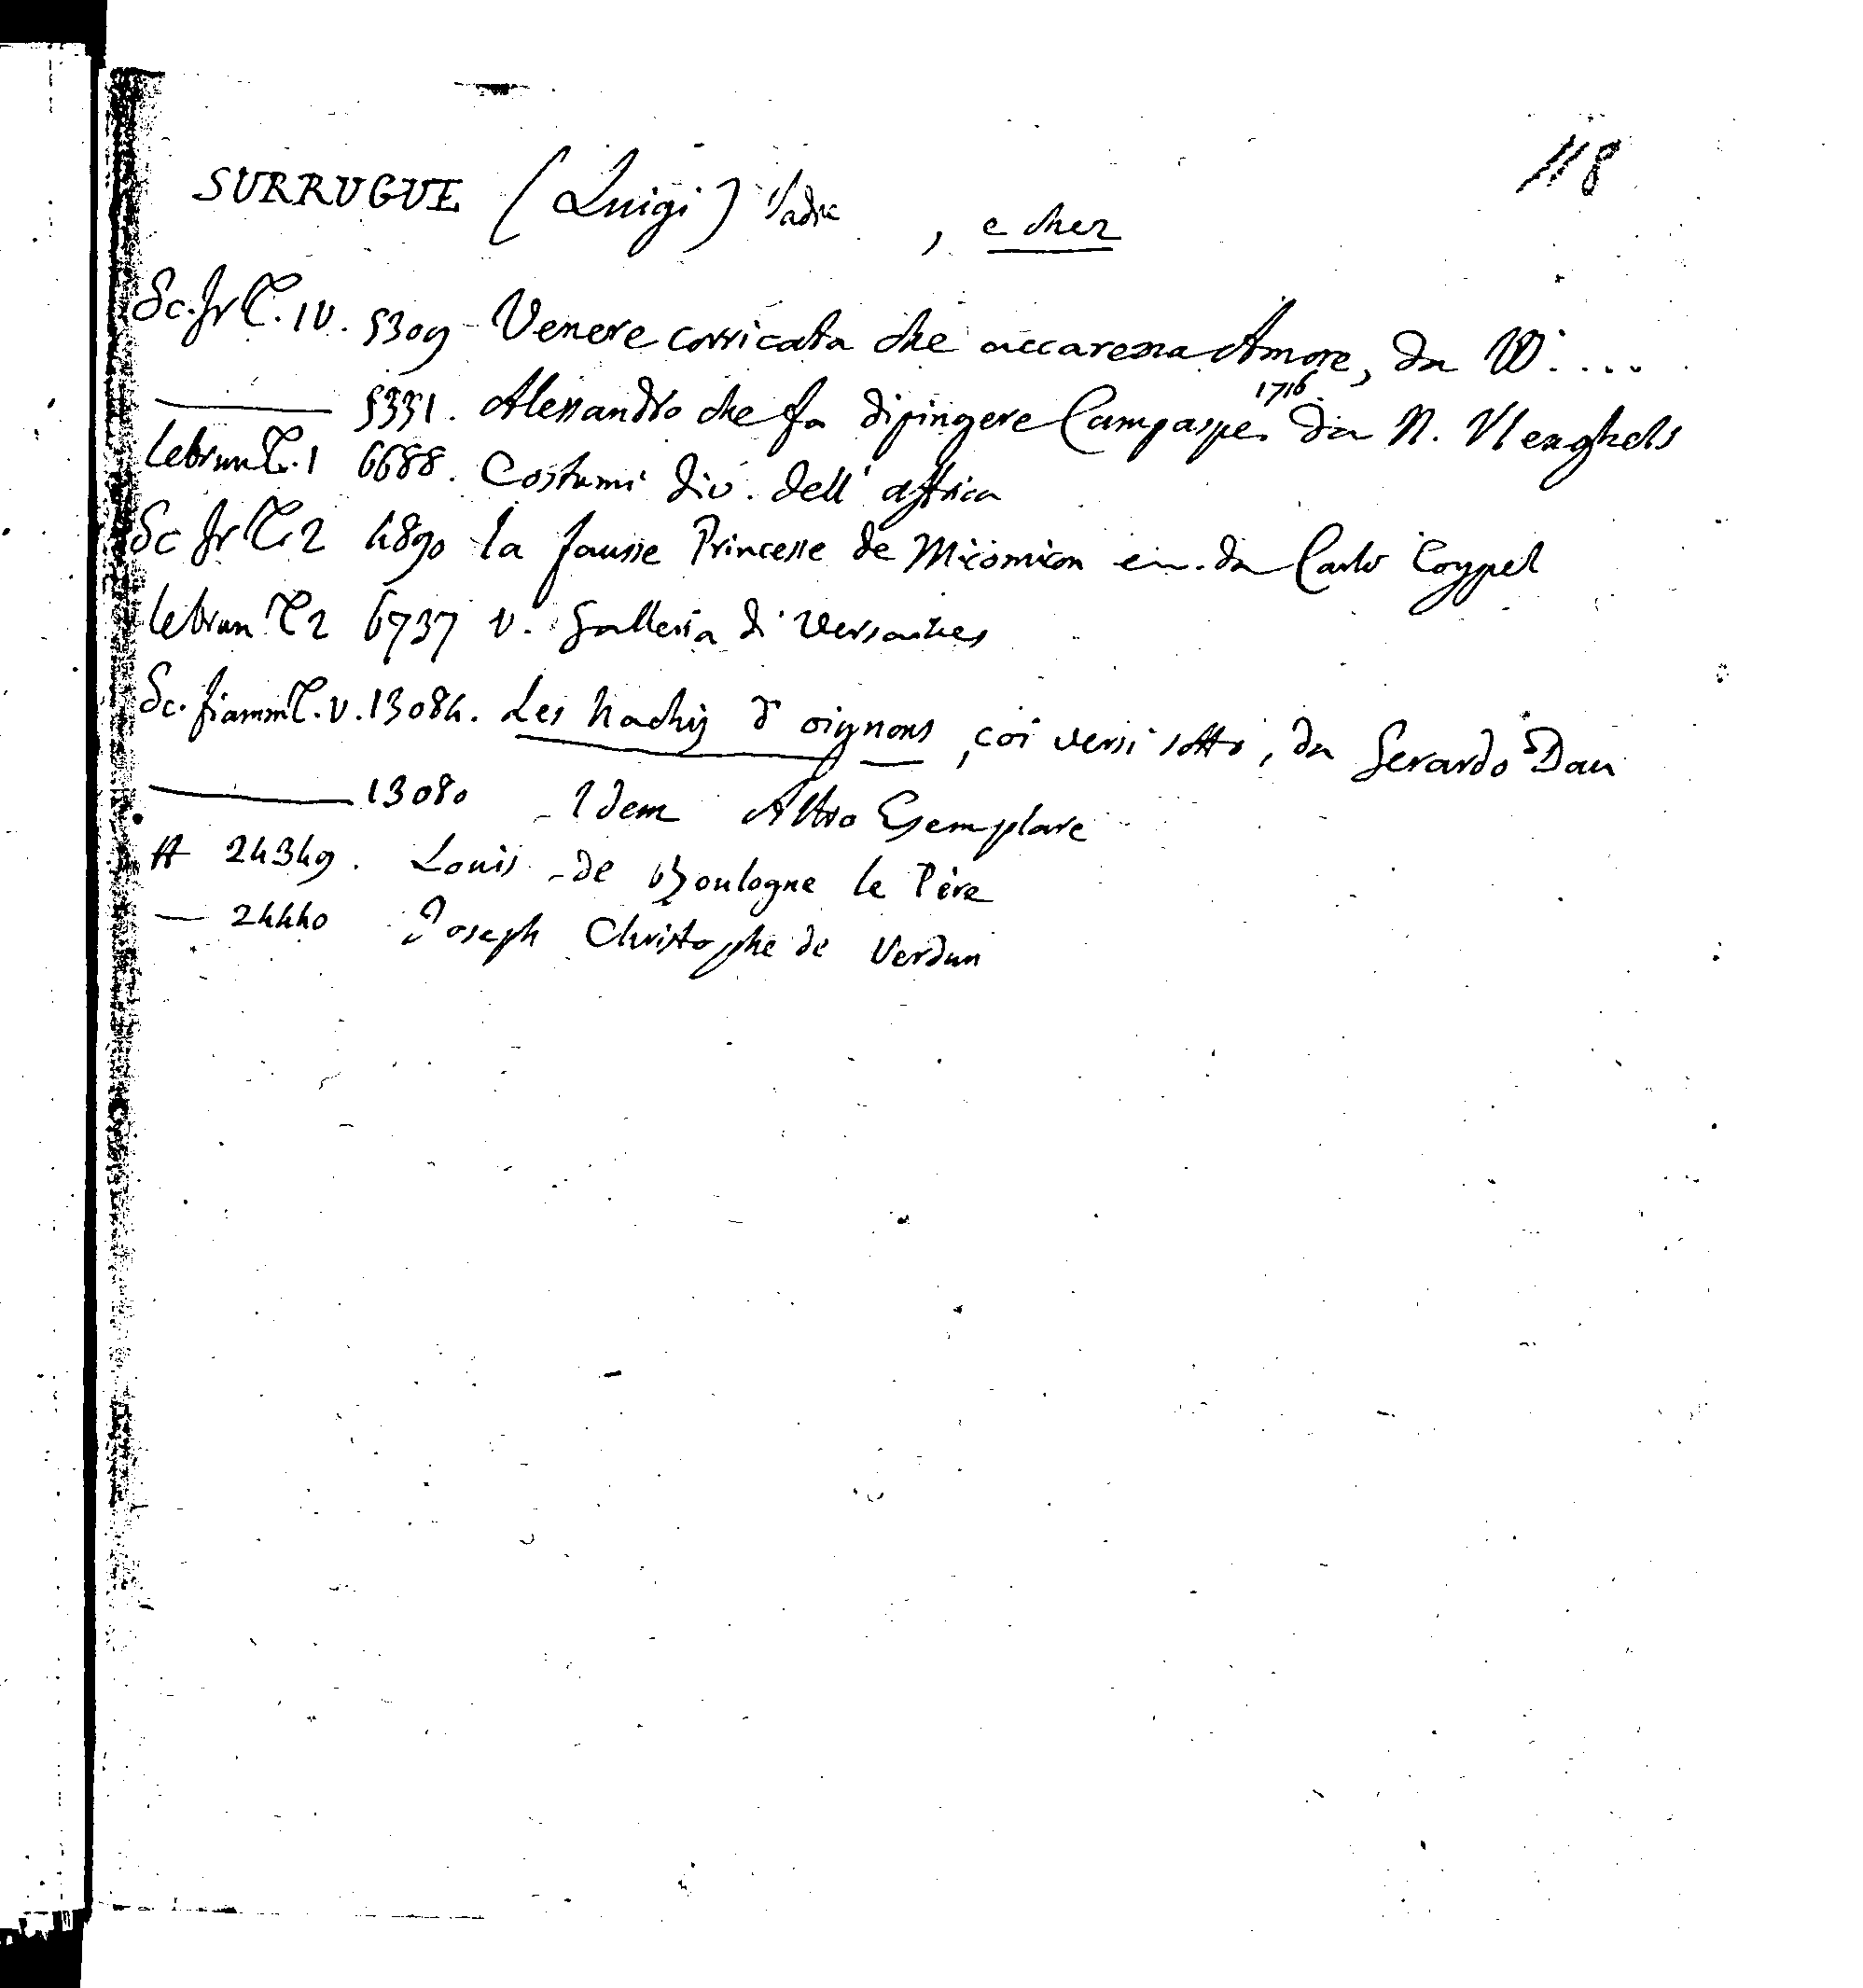 118
SURRUGUE (Luigi) Padre , e chez
Sc. fr T. IV. 5309 Venere corricata che accarezza Amore, da W....
——— 5331. Alessandro che fa dipingere Campaspe. 1716. da N. Vleughels
Lebrun T. 1 6688. Costumi div. dell' Affrica
Sc fr T. 2 4890 la fausse Princesse de Micomicon da Carlo Coypel
lebrun T 2 6737 v. Galleria di Versailles
Sc. fiamm T. V. 13084. Les hachis d'oignons, coi versi sotto, da Gerardo Dau
——— 13080 Idem Altro Esemplare
A 24349. Louis de Boulogne le Père
— 24440 Joseph Christophe de Verdun